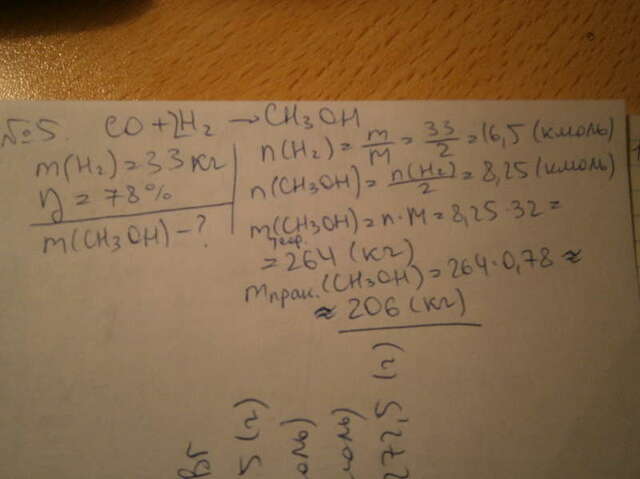 №5. CO + 2H₂ → CH₃OH
m(H₂) = 33 кг
η = 78%
m(CH₃OH) - ?
n(H₂) = m/M = 33/2 = 16,5 (кмоль)
n(CH₃OH) = n(H₂)/2 = 8,25 (кмоль)
m теор. (CH₃OH) = n·M = 8,25·32 =
= 264 (кг)
m прак. (CH₃OH) = 264·0,78 ≈
≈ 206 (кг)
Br
5 (г)
оль)
моль)
272,5 (г)